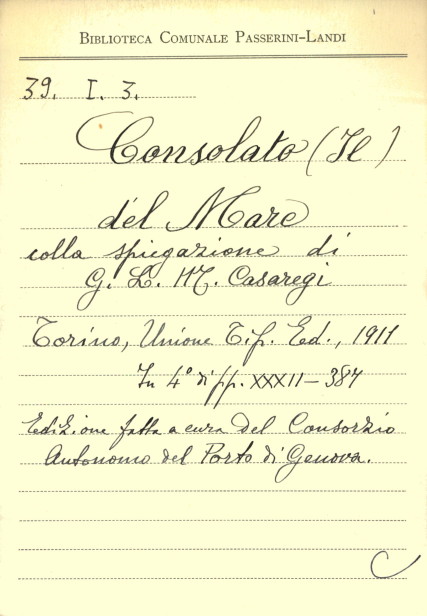 BIBLIOTECA COMUNALE PASSERINI-LANDI
39. I. 3.
Consolato (Il)
del Mare
colla spiegazione di
G. L. M. Casaregi
Torino, Unione Tip. Ed., 1911
In 4° di pp. XXXII-384
Edizione fatta a cura del Consorzio
Autonomo del Porto di Genova.
C